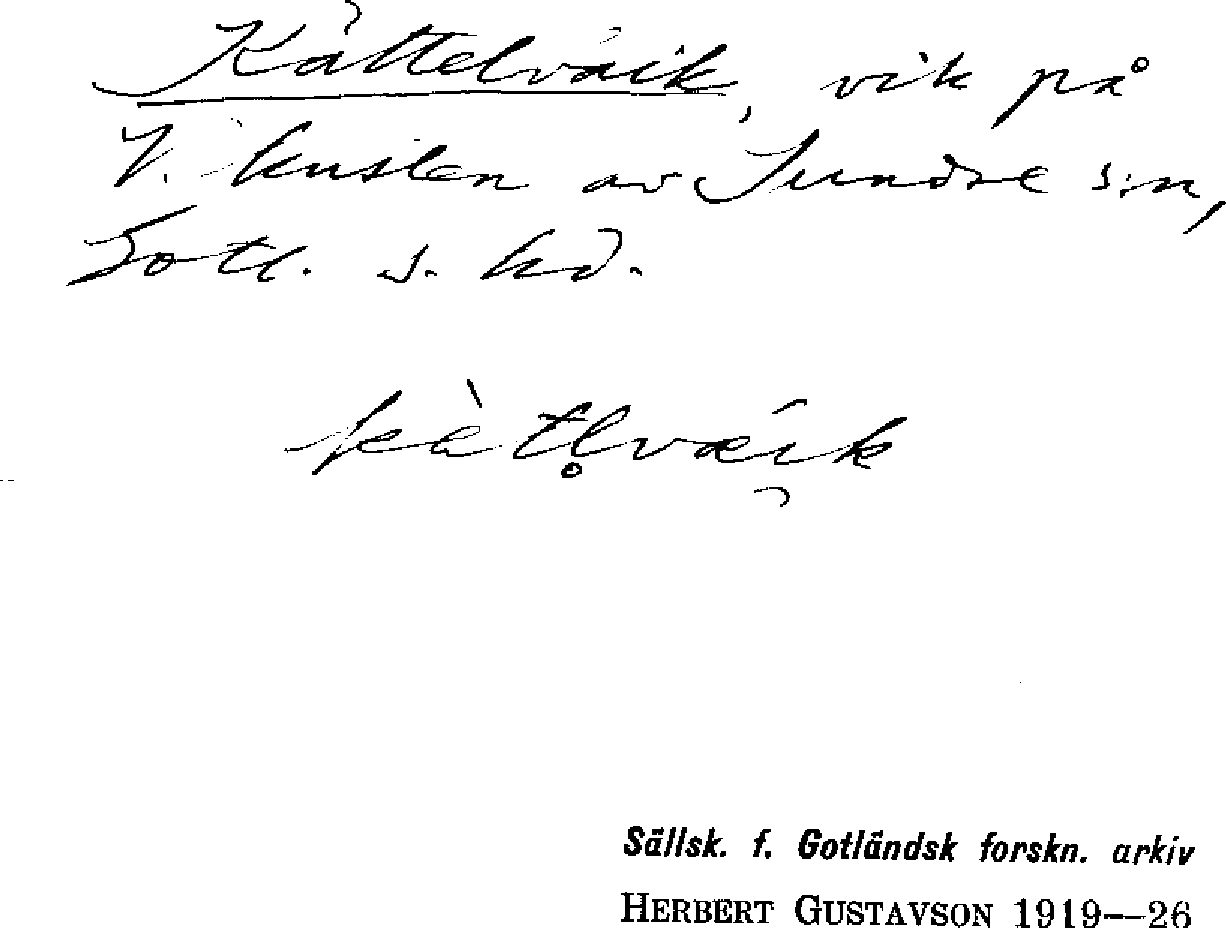 Kättelväik, vik på
V. kusten av Sundre s:n,
Gotl. s. hd.
Sällsk. f. Gotländsk forskn. arkiv
HERBERT GUSTAVSON 1919—26